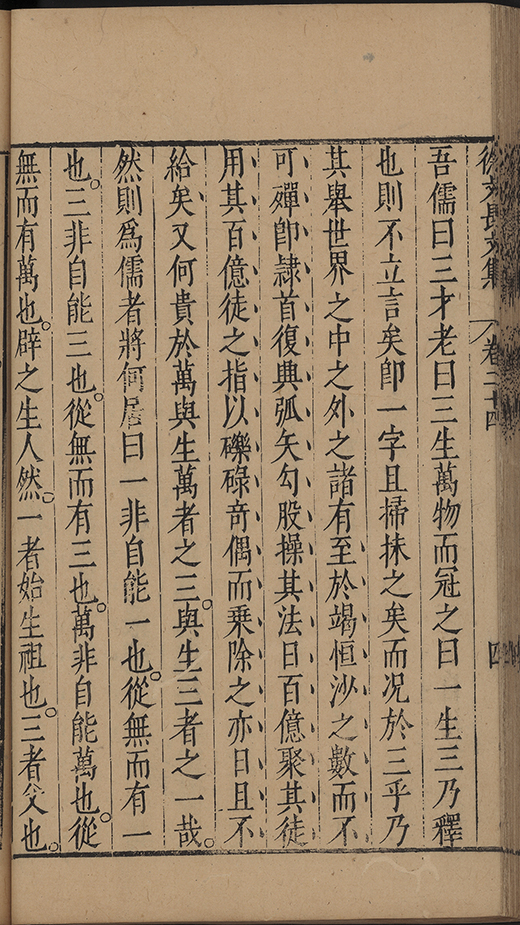 徐文長文集 卷二十四 四
吾儒曰三才老曰三生萬物而冠之曰一生三乃釋
也則不立言矣卽一字且掃抹之矣而况於三乎乃
其舉世界之中之外之諸有至於竭恒沙之數而不
可殫卽隷首復典弧矢勾股操其法日百億聚其徒
用其百億徒之指以礫碌奇偶而乗除之亦日且不
給矣又何貴於萬與生萬者之三。與生三者之一哉。
然則爲儒者將何居曰一非自能一也。從無而有一
也。三非自能三也。從無而有三也。萬非自能萬也。從
無而有萬也。辟之生人然。一者始生祖也。三者父也。